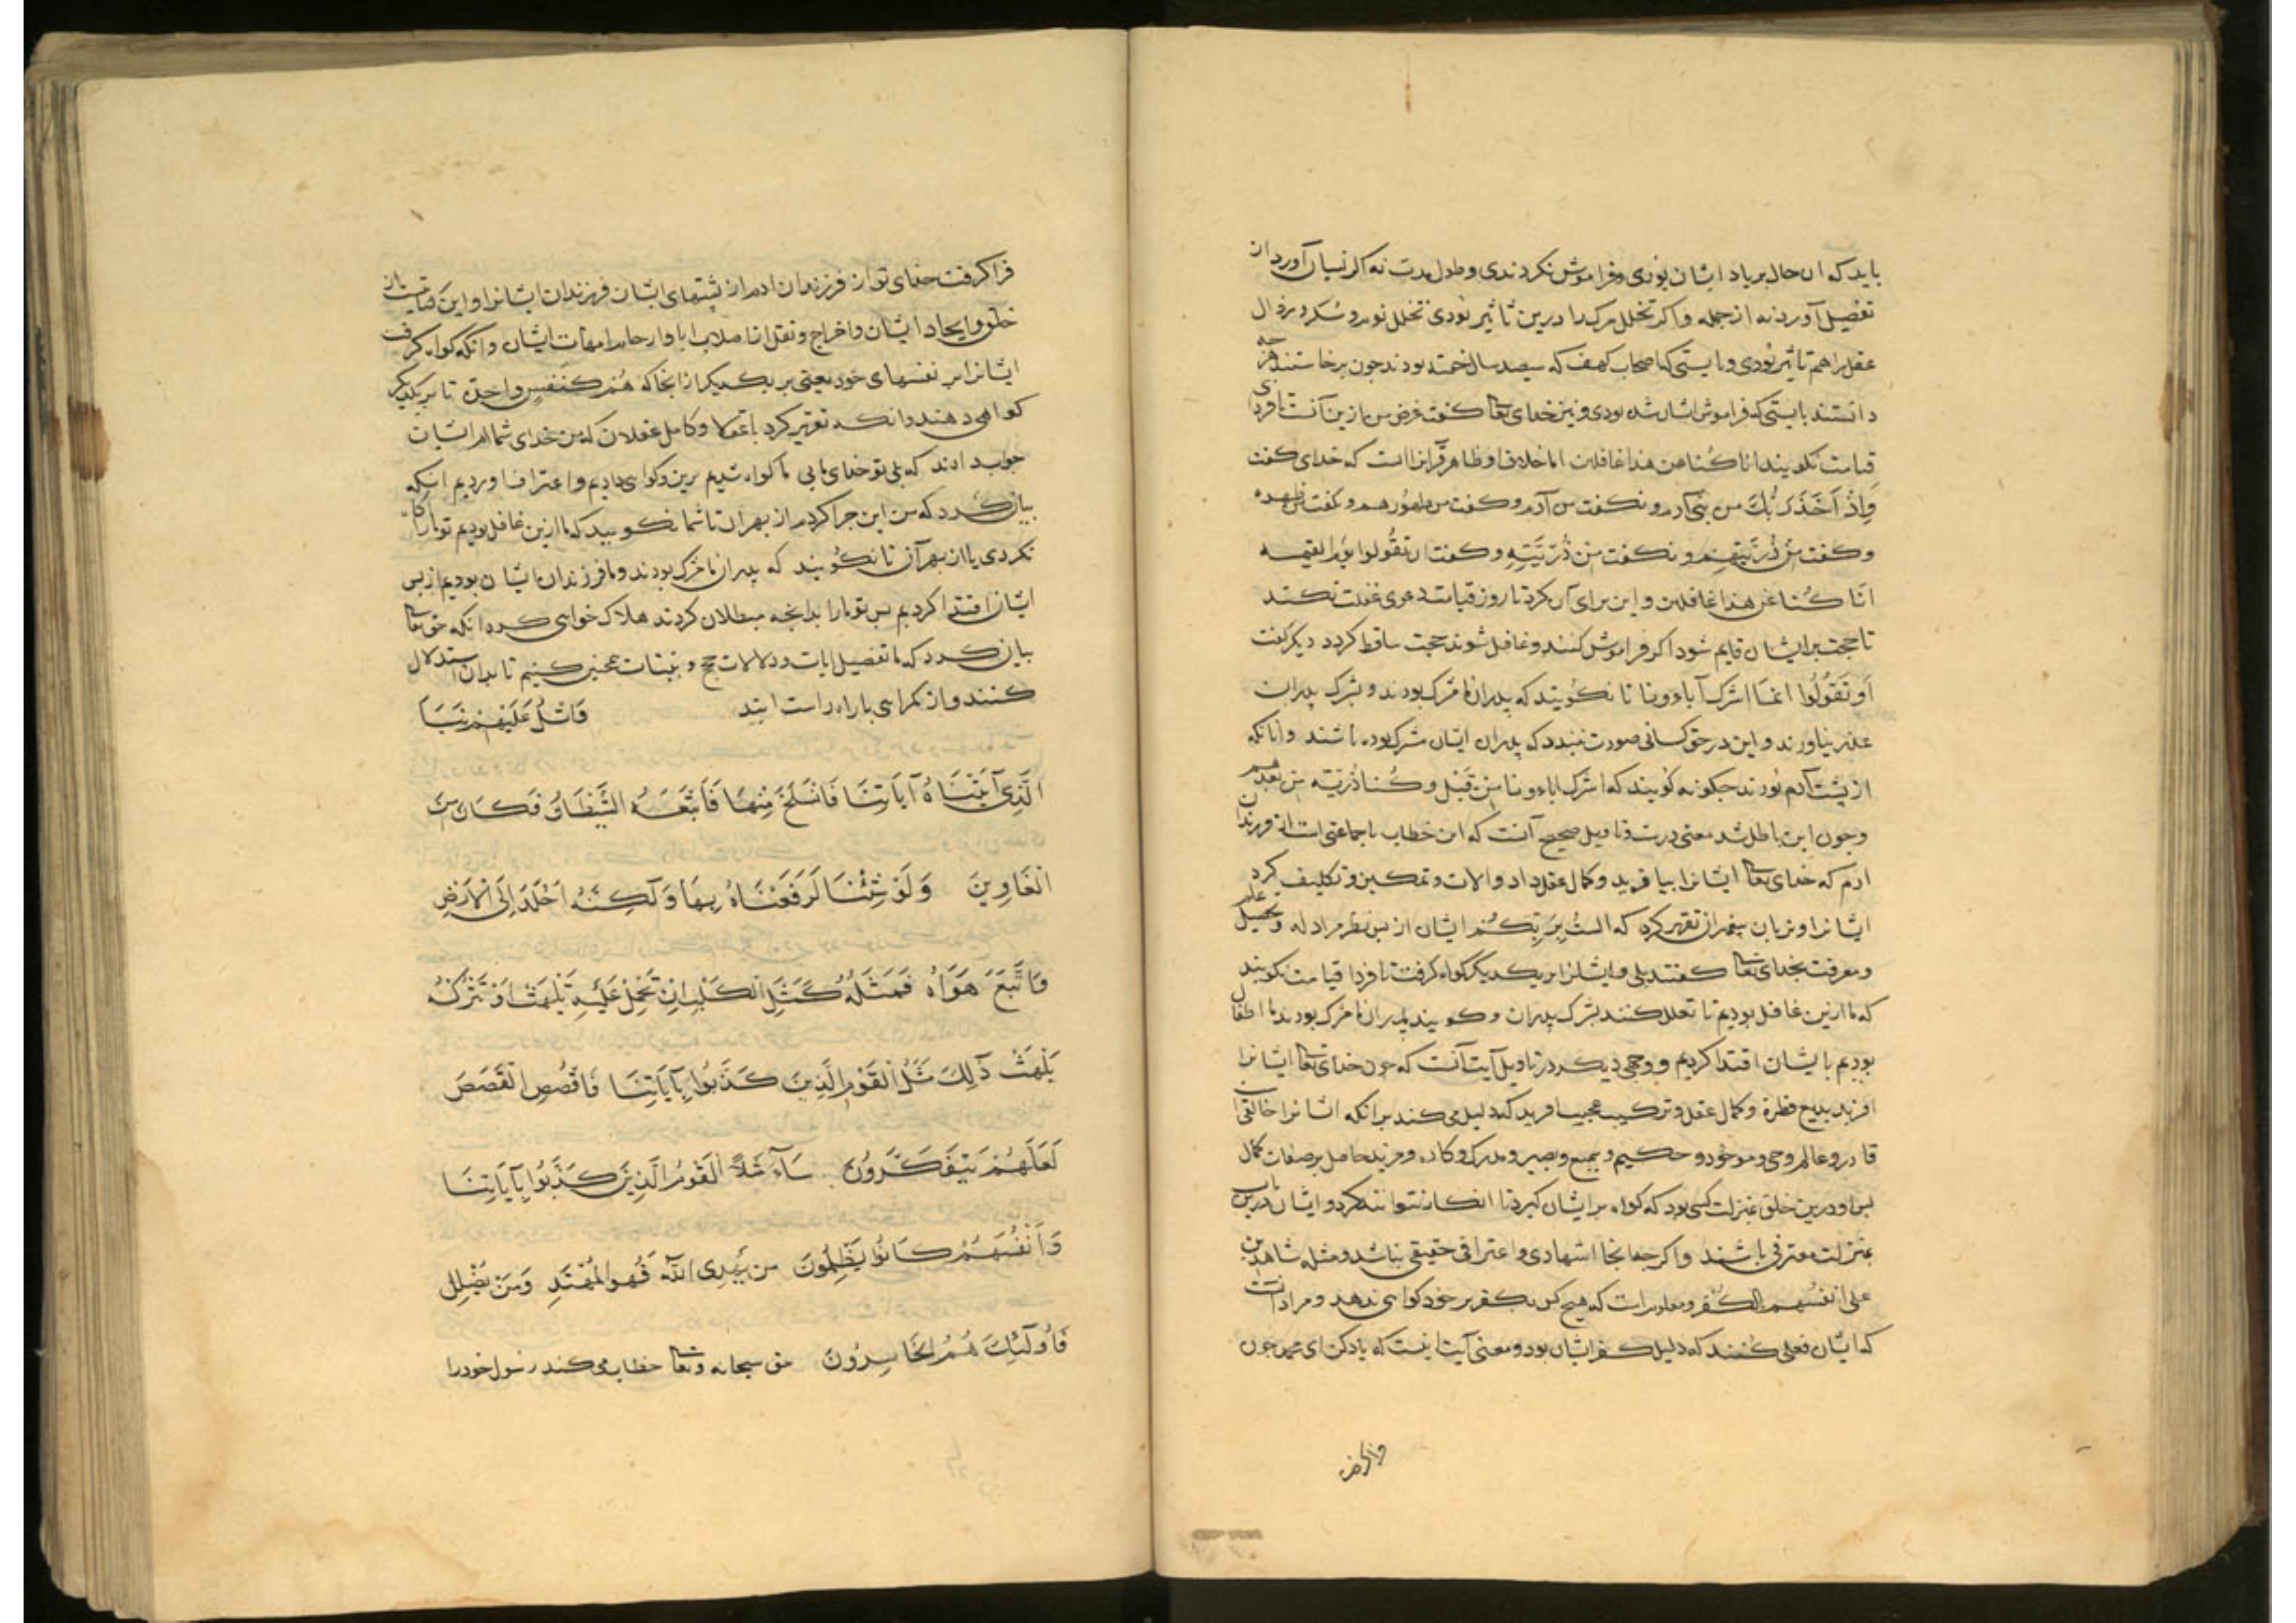 باید که ان حال بر یاد ایشان بودی و فراموش نکردندی و طول مدت نه اگر نسیان آورد از
تفصیل آورد نه از جمله و اکر تخلل مرک را درین تاثیر بودی تخلل نوم و سکر و زوال
عقل را هم تاثیر بودی و بایستی که اصحاب کهف که سیصد سال خفته بودند جون برخاستند هرجه
دانستند بایستی که فراموش ایشان شده بودی و نیز خدای تعالی کفت غرض من ازین آنست تا فردای
قیامت نکویند انا کنا عن هذا غافلین اما خلاف او ظاهر قرآنرا است که خدای کفت
وَاِذْ اَخَذَ رَبُّكَ من بنی آدم و نکفت من آدم و کفت من ظهورهم و نکفت من ظهره
و کفت مِنْ ذُرِّیَّتِهِمْ و نکفت مِنْ ذُرِّیَّتِهِ و کفت ان تقُولوا یوم القیمه
انّا کُنا عن هذا غافلین و این برای آن کرد تا روز قیامت دعوی غفلت نکنند
تا حجت بر ایشان قایم شود اکر فراموش کنند و غافل شوند حجت ساقط کردد دیکر کفت
اَو تَقُولُوا انما اشرک آباءونا تا نکویند که پدران ما مشرک بودند و بشرک پدران
عذر نیاورند و این در حق کسانی صورت نبندد که پدران ایشان مشرک بوده باشند و آنانکه
از پشت آدم بودند جکونه کویند که اشرک اباءونا من قبل و کُنا ذُرّیّه من بعدهم
و جون این باطل شد معنی درست و تاویل صحیح آنست که این خطاب با جماعتی است از فرزندان
ادم که خدای تعالی ایشانرا بیافرید و کمال عقل داد و الات و تمکین و تکلیف کرد
ایشانرا و بزبان پیغمبران تقریر کرد که الستُ بِرَبِّکُم ایشان از سر نظر در ادله و تحصیل علم
و معرفت بخدای تعالی کفتند بلی و ایشانرا بر یکدیکر کواه کرفت تا فردا قیامت نکویند
که ما ازین غافل بودیم تا تعلل کنند بشرک پدران و کویند پدران ما مشرک بودند ما اطفال
بودیم بایشان اقتدا کردیم و وجهی دیکر در تاویل آیت آنست که جون خدای تعالی ایشانرا
افرید بدیع فطرة و کمال عقل و ترکیب عجیب افرید که دلیل می کند بر انکه ایشانرا خالقی است
قادر و عالم و حی و موجود و حکیم و سمیع و بصیر و مدرک و کاره و مرید حاصل بر صفات کمال
پس او درین خلق بمنزلت کسی بود که کواه بر ایشان کیرد تا انکار نتوانند کرد و ایشان درین باب
بمنزلت معترفی باشند و اکرجه انجا اشهادی و اعترافی حقیقی نباشد و مثله شاهدین
علی انفُسِهِم بالکُفر و معلوم است که هیچ کس بکفر بر خود کواهی ندهد و مراد آنست
که ایشان فعلی کنند که دلیل کفر ایشان بود و معنی آیت اینست که یاد کن ای محمد جون
فرا کرفت
فرا کرفت خدای تو از فرزندان ادم از پشتهای ایشان فرزندان ایشانرا و این
خلق و ایجاد ایشان و اخراج و نقل از اصلاب ابا و ارحام امهات ایشان و انکه کواه کرفت
ایشانرا بر نفسهای خود یعنی بر یکدیکر از انجا که هُم کَنَفسٍ واحدة تا بر یکدیکر
کواهی دهند و انکه تقریر کرد با عقلا و کامل عقلان که من خدای شماام ایشان
جواب دادند که بلی تو خدای مایی ما کواه شدیم برین و کواهی دادیم و اعتراف اوردیم انکه
بیان کرد که من این جرا کردم از بهر ان تا شما نکویید که ما ازین غافل بودیم تو ما را آکاه
نکردی یا از بهر آن تا نکُویند که پدران ما مشرک بودند و ما فرزندان ایشان بودیم از پس
ایشان اقتدا کردیم پس تو ما را بدانجه مبطلان کردند هلاک خواهی کرد انکه حق تعالی
بیان کرد که ما تفصیل ایات و دلالات حجج و بیّنات همچنین کنیم تا بدان استدلال
کنند و از کمراهی با راه راست ایند وَاتْلُ عَلَیْهِمْ نَبَاَ
الَّذِی آتَیْنَاهُ آیَاتِنَا فَانْسَلَخَ مِنْهَا فَاَتْبَعَهُ الشَّیْطَانُ فَکَانَ مِنَ
الْغَاوِینَ وَلَوْ شِئْنَا لَرَفَعْنَاهُ بِهَا وَلٰکِنَّهُ اَخْلَدَ اِلَی الْاَرْضِ
وَاتَّبَعَ هَوَاهُ فَمَثَلُهُ کَمَثَلِ الْکَلْبِ اِنْ تَحْمِلْ عَلَیْهِ یَلْهَثْ اَوْ تَتْرُکْهُ
یَلْهَثْ ذٰلِكَ مَثَلُ الْقَوْمِ الَّذِینَ کَذَّبُوا بِآیَاتِنَا فَاقْصُصِ الْقَصَصَ
لَعَلَّهُمْ یَتَفَکَّرُونَ سَآءَ مَثَلًا الْقَوْمُ الَّذِینَ کَذَّبُوا بِآیَاتِنَا
وَاَنْفُسَهُمْ کَانُوا یَظْلِمُونَ مَن یَهْدِی اللّٰه فَهُوَ الْمُهْتَدِ وَمَنْ یُضْلِلْ
فَاُولٰئِكَ هُمُ الْخَاسِرُونَ حق سبحانه و تعالی خطاب می کند رسول خود را